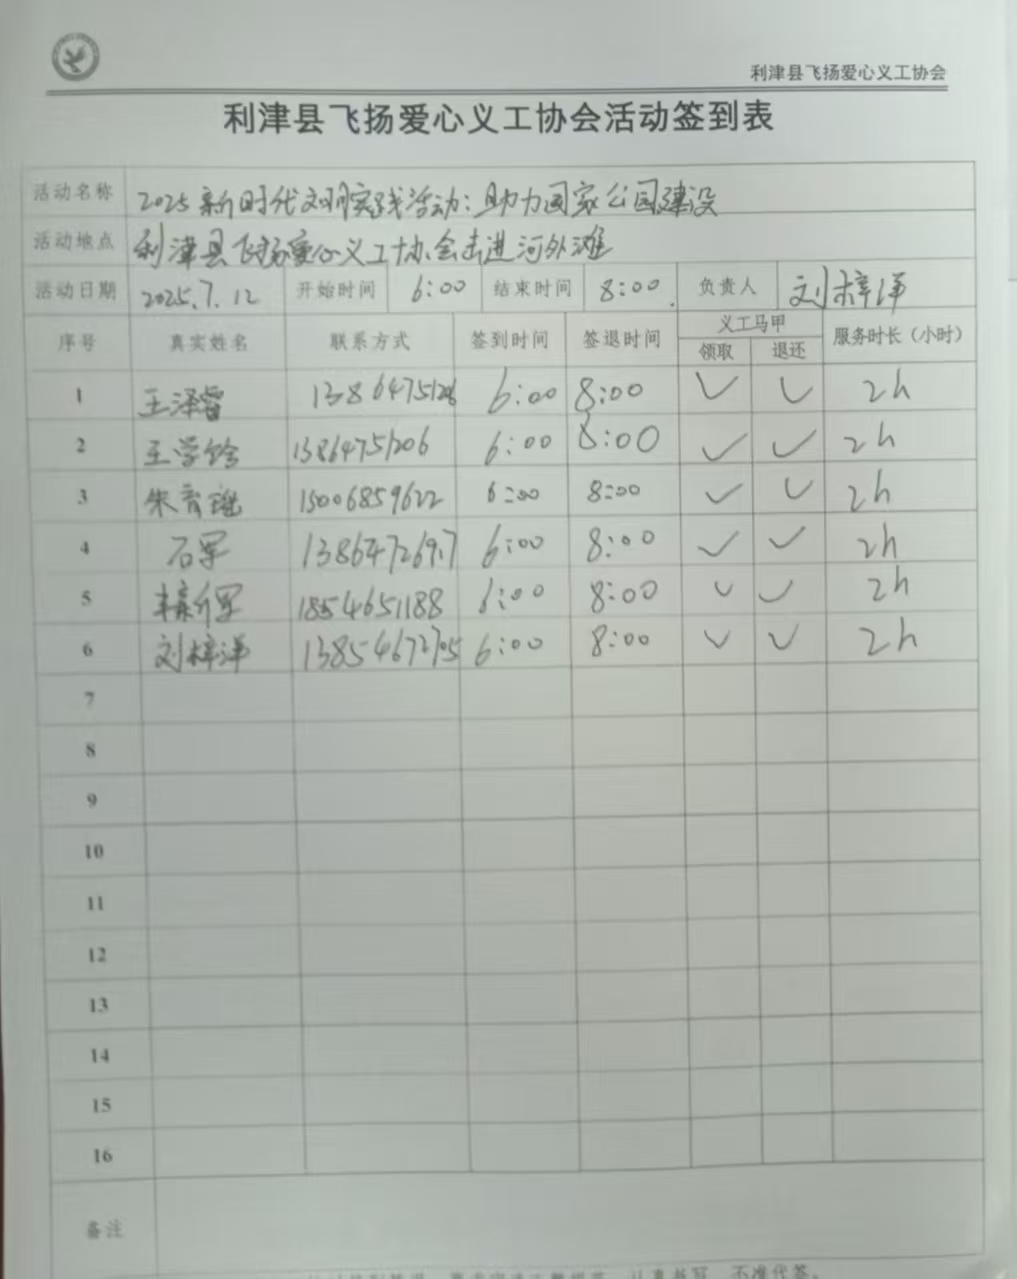 利津县飞扬爱心义工协会
利津县飞扬爱心义工协会活动签到表
活动名称 2025新时代文明实践活动：助力国家公园建设
活动地点 利津县飞扬爱心义工协会走进河外滩
活动日期 2025.7.12 开始时间 6:00 结束时间 8:00. 负责人 刘梓洋
序号 真实姓名 联系方式 签到时间 签退时间 义工马甲 服务时长（小时）
领取 退还
1 王泽睿 6:00 8:00 ✓ ✓ 2h
2 王学铃 13864751206 6:00 8:00 ✓ ✓ 2h
3 朱育瑶 15006859622 6:00 8:00 ✓ ✓ 2h
4 石军 6:00 8:00 ✓ ✓ 2h
5 1854651188 6:00 8:00 ✓ ✓ 2h
6 刘梓洋 13854672705 6:00 8:00 ✓ ✓ 2h
7
8
9
10
11
12
13
14
15
16
备注
认真书写，不准代签。